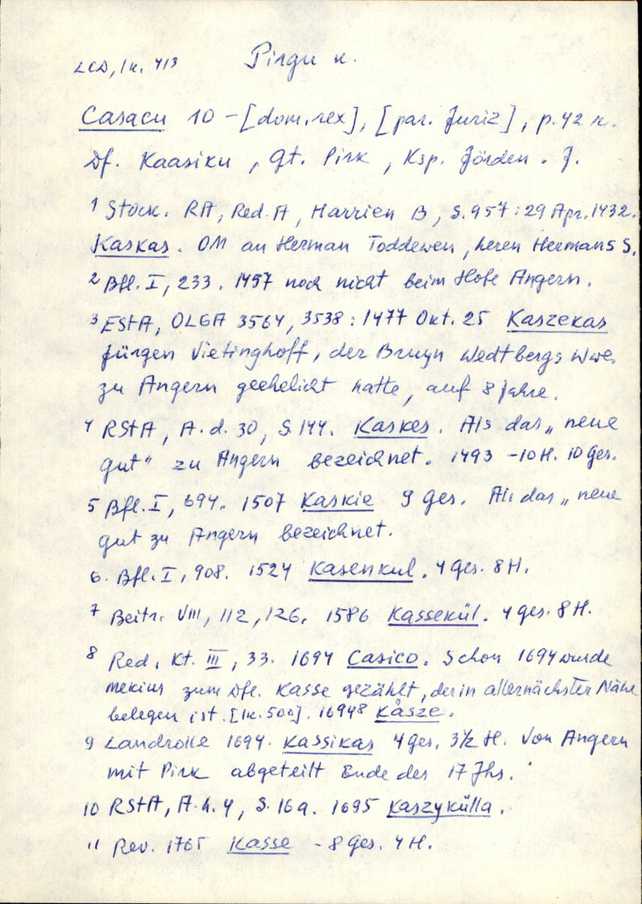 LCD, lk. 413 Pirgu k.
Casacu 10 - [dom. rex], [par. Juriz], p. 42 r.
Df. Kaasiku, Gt. Pirk, Ksp. Jörden. J.
1 Stock. RA, Red. A, Harrien B, S. 957: 29 Apr. 1432.
Kaskas. OM an Herman Toddewen, heren Hermans S.
2 Bfl. I, 233. 1457 noch nicht beim Hofe Angern.
3 EStA, OLGA 3564, 3538: 1477 Okt. 25 Kaszekas
Jürgen Vietinghoff, der Bruyn Wedtbergs Wwe.
zu Angern geehelicht hatte, auf 8 Jahre.
4 RStA, A.d. 30, S. 144. Kaskes. Als das "neue
gut" zu Angern bezeichnet. 1493 - 10 H. 10 Ges.
5 Bfl. I, 694. 1507 Kaskie 9 ges. Als das "neue
gut zu Angern bezeichnet.
6. Bfl. I, 908. 1524 Kasenkul. 4 ges. 8 H.
7 Beitr. VIII, 112, 126. 1586 Kassekül. 4 ges. 8 H.
8 Red. Kt. III, 33. 1694 Casico. Schon 1694 wurde
Mekius zum Dfl. Kasse gezählt, der in allernächster Nähe
belegen ist. [lk. 500]. 16948 Kåsze.
9 Landrolle 1694. Kassikas 4 ges. 3 1/2 H. Von Angern
mit Pirk abgeteilt Ende des 17 Jhs.
10 RStA, A.h. 4, S. 16a. 1695 Kaszykülla.
11 Rev. 1765 Kasse - 8 ges. 4 H.